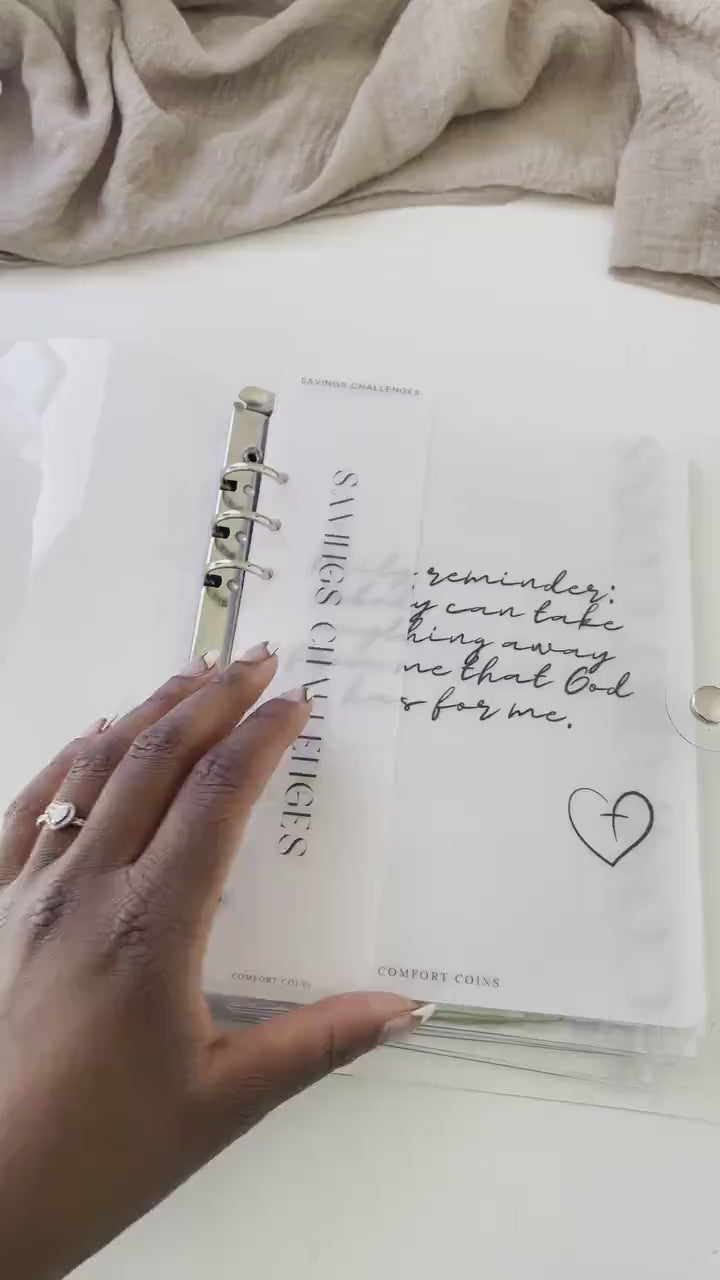 SAVINGS CHALLENGES
SAVINGS CHALLENGES
reminder:
can take
away
me that God
has for me.
COMFORT COINS
COMFORT COINS